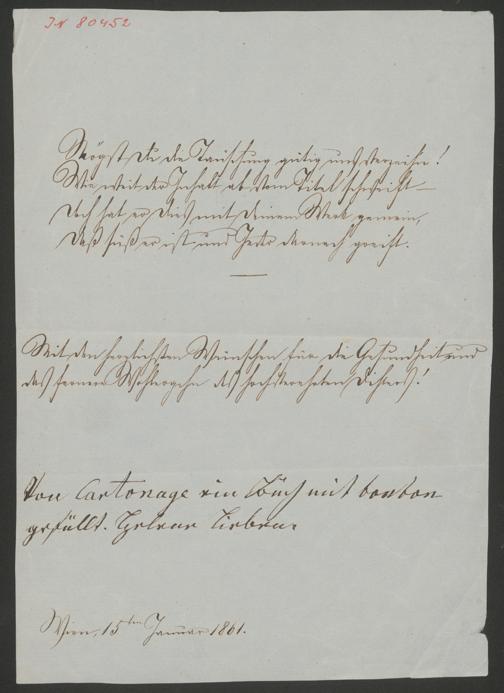 IN 80452
Mögst Du die Täuschung gütig uns verzeihn!
Wie weit der Inhalt ab vom Titel schweift –
Doch hat er dies mit deinem Werk gemein,
Daß süß er ist und Jeder darnach greift.
Mit den herzlichsten Wünschen für die Gesundheit und
das fernere Wohlergehn des hochverehrten Dichters!
Von Cartonage ein Buch mit bonbon
gefüllt. Helene Lieben.
Wien, 15ten Januar 1861.